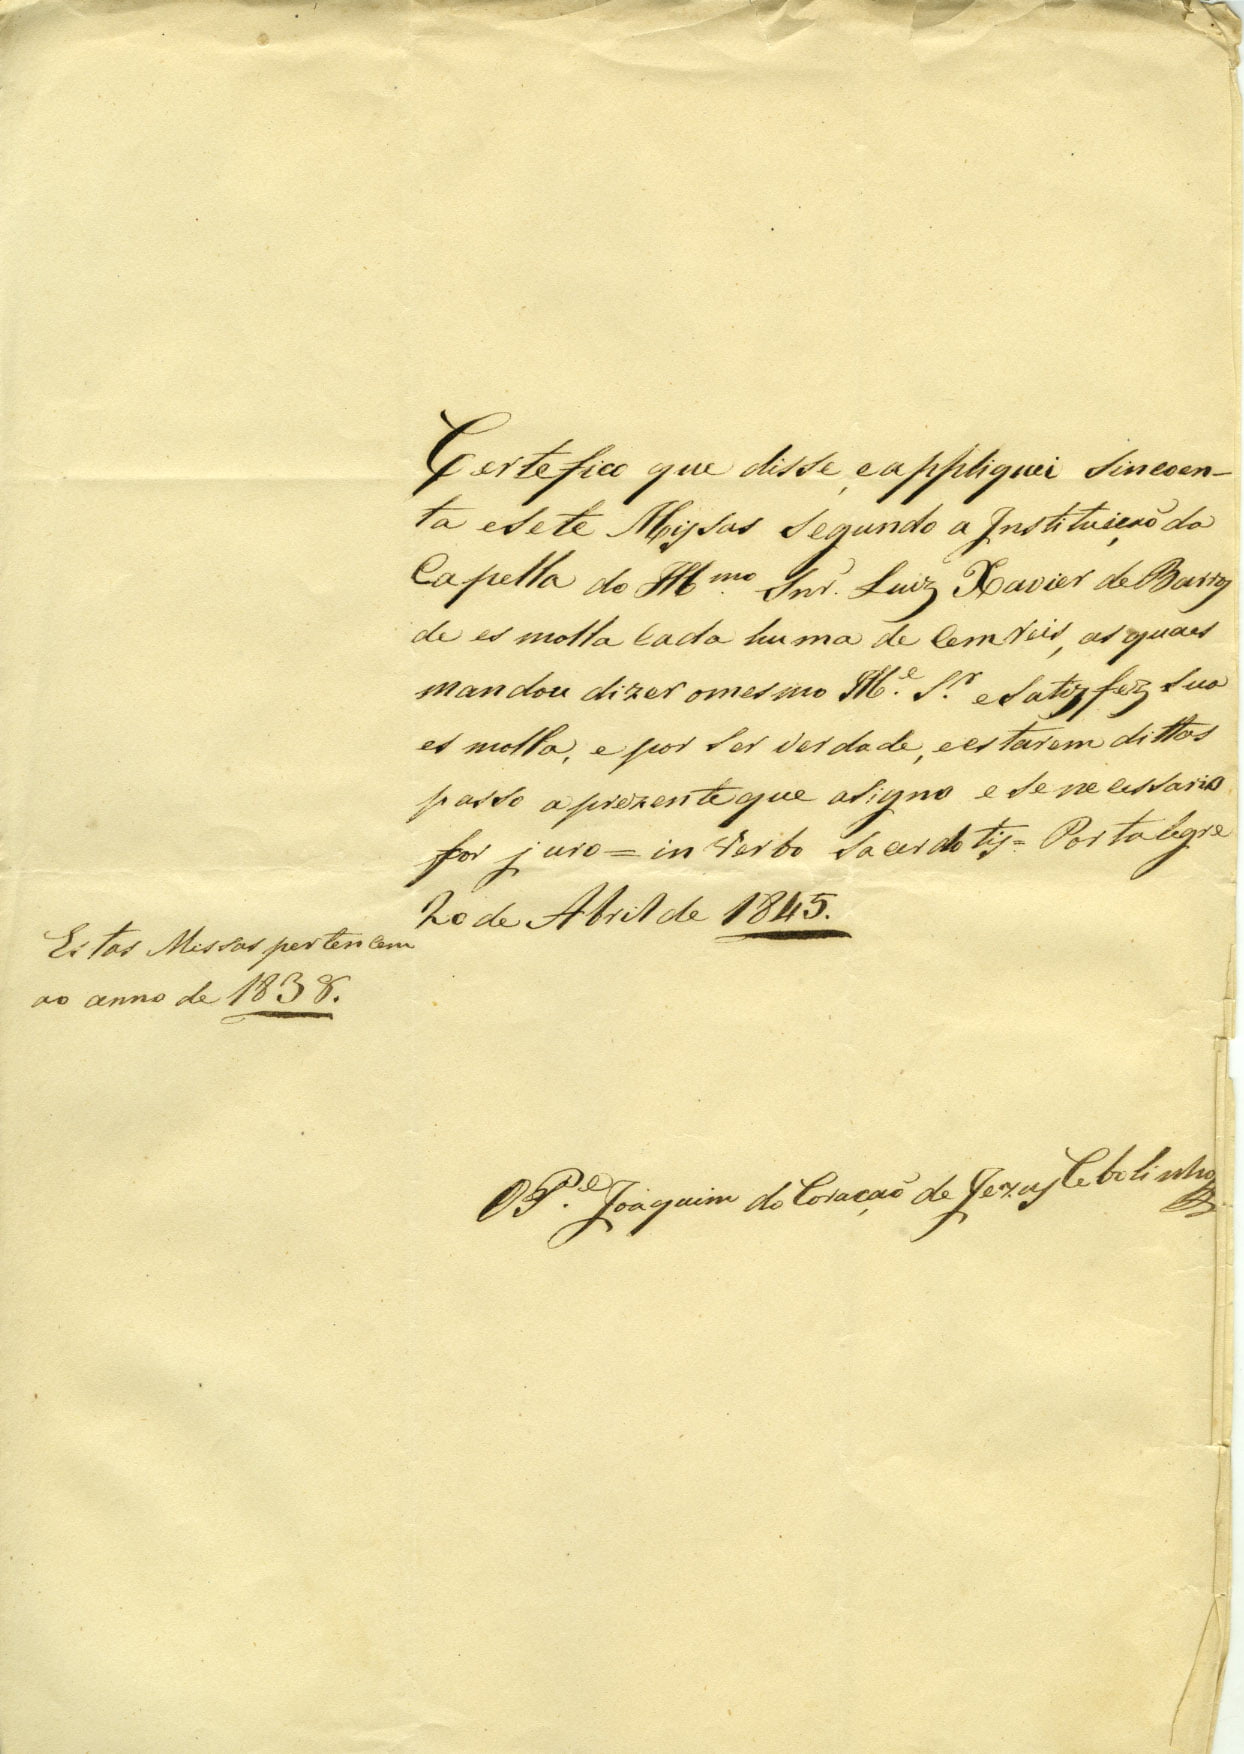 Certefico que disse, e appliquei sincoen-
ta e sete Missas segundo a Instituição da
Capella do Illmo. Snr. Luiz Xavier de Barros
de esmolla cada huma de cem reis, as quaes
mandou dizer o mesmo Ille. Sr. e satizfez sua
esmolla, e por ser verdade, e estarem dittas
passo a prezente que asigno e se necessario
for juro = in verbo sacerdotis = Portalegre
20 de Abril de 1845.
Estas Missas pertencem
ao anno de 1838.
O Pe. Joaquim do Coração de Jezus Cebolinho